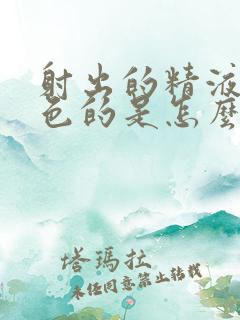 射出的精液
色的是怎麽
塔瑪拉
未经同意禁止转载